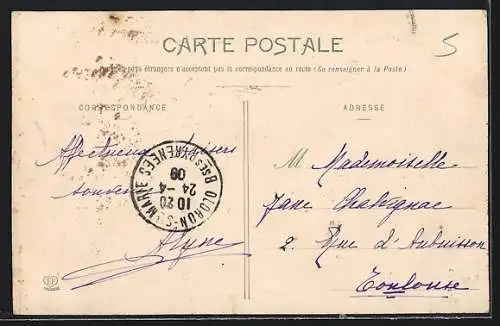 5
CARTE POSTALE
pays étrangers n'acceptent pas la correspondance au recto (Se renseigner à la Poste)
CORRESPONDANCE
ADRESSE
Affectueux baisers
OLORON-Ste-MARIE
Bses PYRENEES
10 20
24 - 4
09
M Mademoiselle
Jane
2. Rue d'Aubuisson
Toulouse